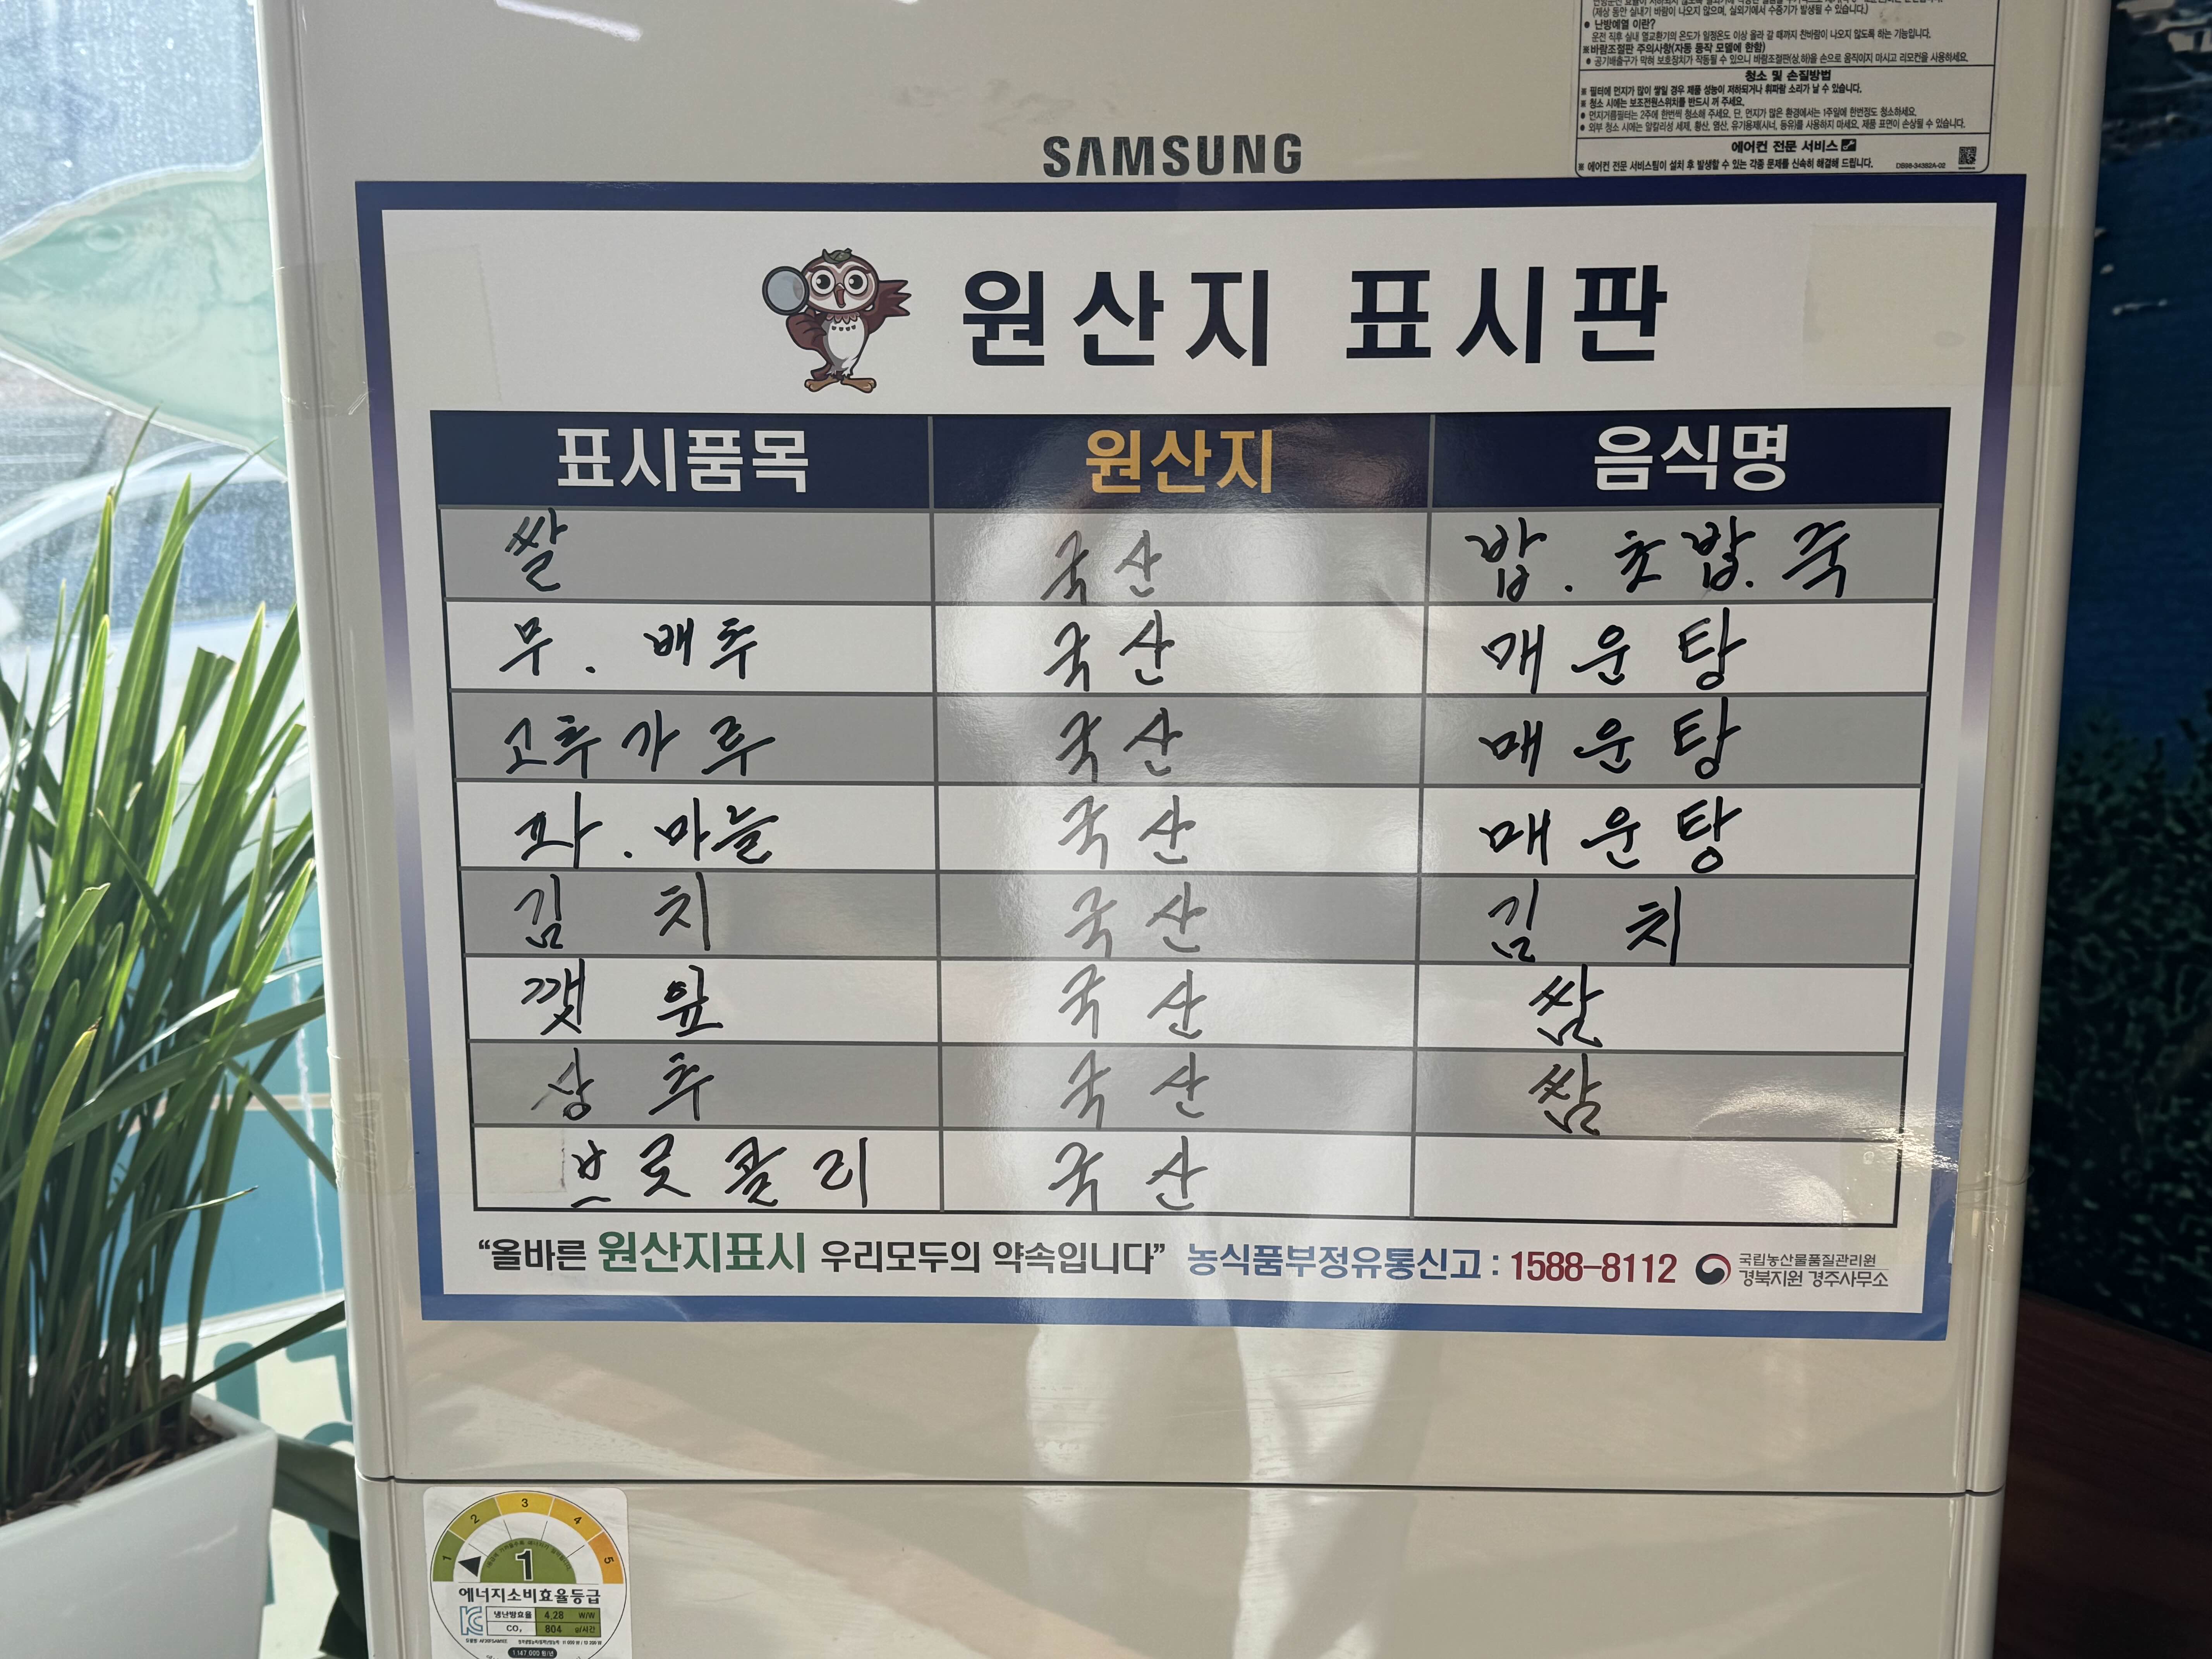 (제상 동안 실내기 바람이 나오지 않으며, 실외기에서 수증기가 발생될 수 있습니다.)
● 난방예열 이란?
운전 직후 실내 열교환기의 온도가 일정온도 이상 올라 갈 때까지 찬바람이 나오지 않도록 하는 기능입니다.
※ 바람조절판 주의사항(자동 동작 모델에 한함)
● 공기배출구가 막혀 보호장치가 작동될 수 있으니 바람조절판(상,하)을 손으로 움직이지 마시고 리모컨을 사용하세요.
청소 및 손질방법
※ 필터에 먼지가 많이 쌓일 경우 제품 성능이 저하되거나 휘파람 소리가 날 수 있습니다.
※ 청소 시에는 보조전원스위치를 반드시 꺼 주세요.
● 먼지거름필터는 2주에 한번씩 청소해 주세요. 단, 먼지가 많은 환경에서는 1주일에 한번정도 청소하세요.
● 외부 청소 시에는 알칼리성 세제, 황산, 염산, 유기용제(시너, 등유)를 사용하지 마세요. 제품 표면이 손상될 수 있습니다.
에어컨 전문 서비스
※ 에어컨 전문 서비스팀이 설치 후 발생할 수 있는 각종 문제를 신속히 해결해 드립니다. DB98-34382A-02
SAMSUNG
원산지 표시판
표시품목 원산지 음식명
쌀 국산 밥. 초밥. 죽
무. 배추 국산 매운탕
고추가루 국산 매운탕
파. 마늘 국산 매운탕
김치 국산 김치
깻잎 국산 쌈
상추 국산 쌈
브로콜리 국산
“올바른 원산지표시 우리모두의 약속입니다” 농식품부정유통신고 : 1588-8112 국립농산물품질관리원
경북지원 경주사무소
1 2 3 4 5
1
에너지소비효율등급
냉난방효율 4.28 W/W
CO₂ 804 g/시간